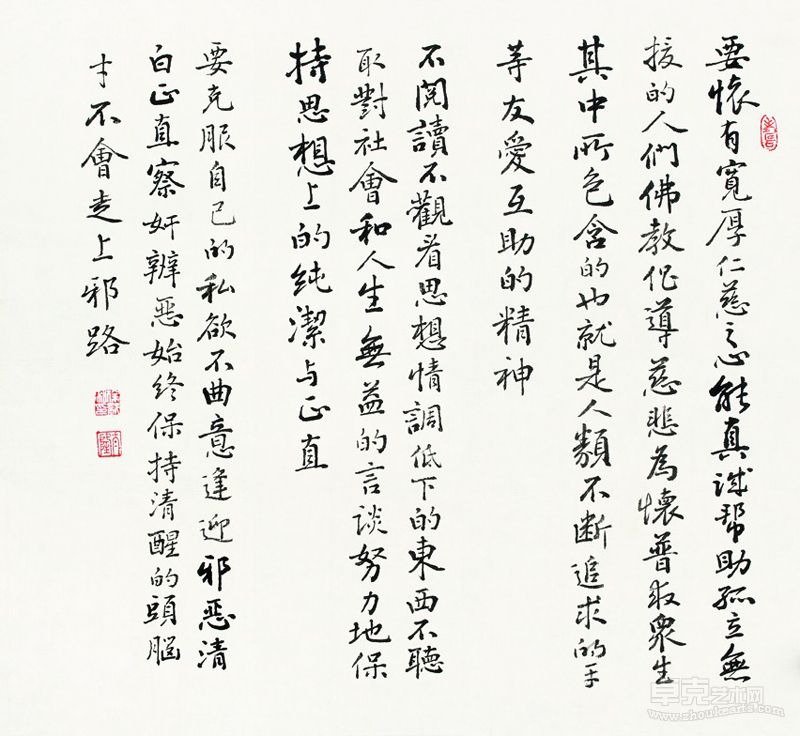 要懷有寬厚仁慈之心能真誠幫助孤立無
援的人們佛教倡導慈悲為懷普救衆生
其中所包含的也就是人類不断追求的平
等友愛互助的精神
不閱讀不觀看思想情調低下的東西不聽
取對社會和人生無益的言談努力地保
持思想上的純潔与正直
要克服自己的私欲不曲意逢迎邪惡清
白正直察奸辨惡始终保持清醒的頭脳
才不會走上邪路
卓克艺术网
www.zhoukearts.com